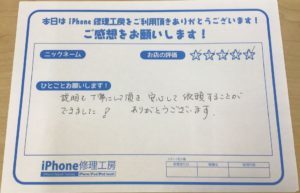 本日は iPhone 修理工房をご利用頂きありがとうございます!
ご感想をお願いします!
ニックネーム
お店の評価 ☆☆☆☆☆
ひとことお願いします!
説明も丁寧にして頂き安心して依頼することが
できました! ありがとうございます。
iPhone修理工房